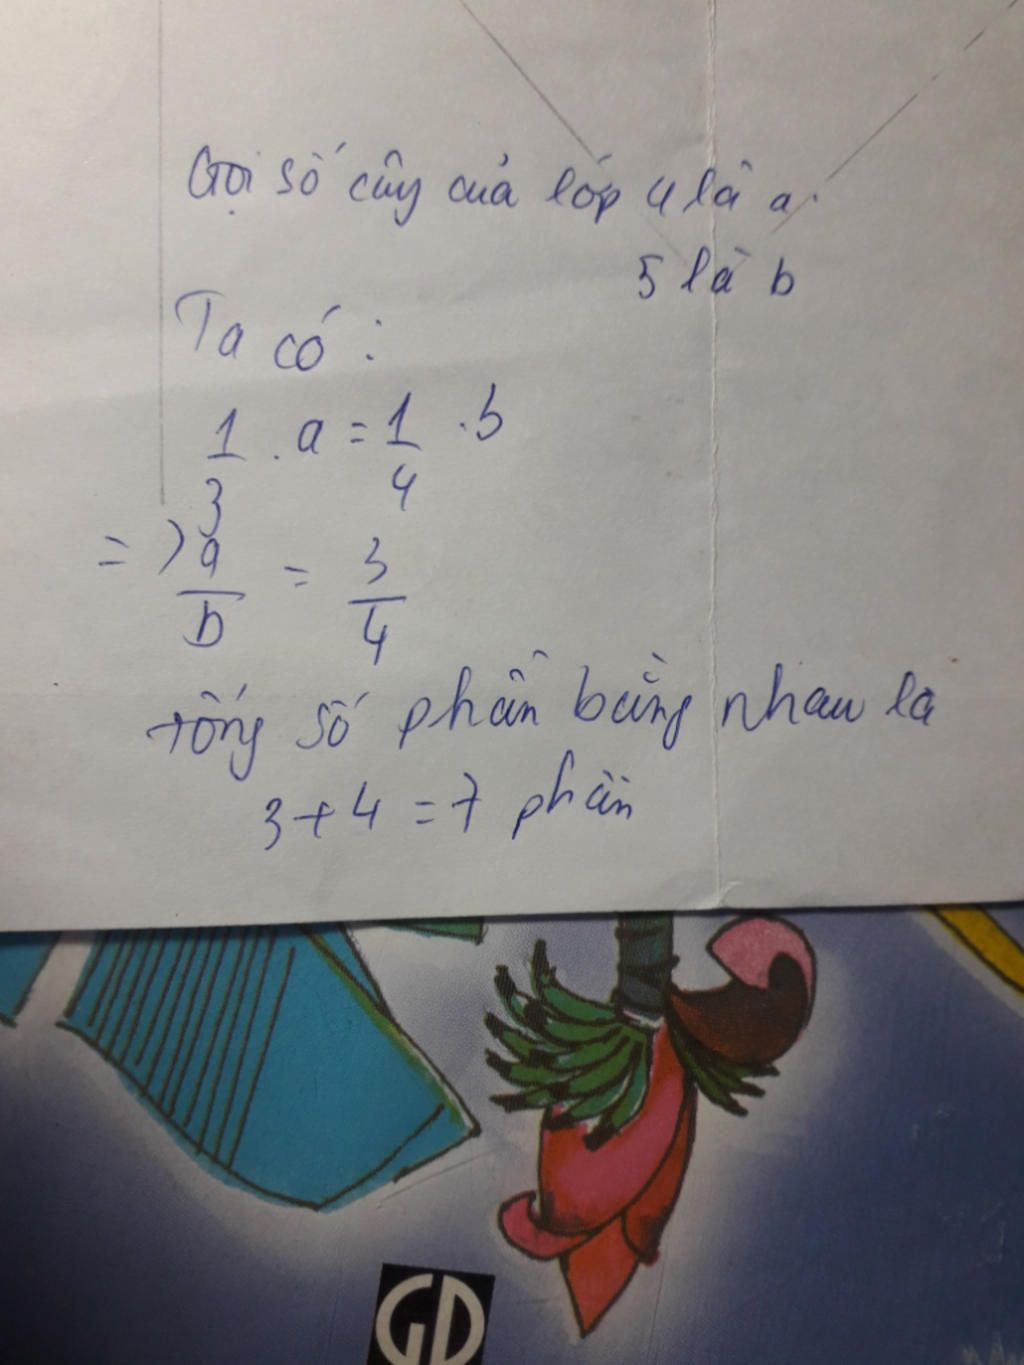 Gọi số cây của lớp 4 là a.
5 là b
Ta có :
1/3 . a = 1/4 . b
=> a/b = 3/4
tổng số phần bằng nhau là
3 + 4 = 7 phần
GD